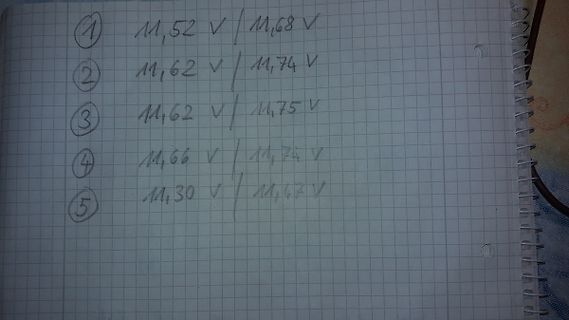 ① 11,52 V / 11,68 V
② 11,62 V / 11,74 V
③ 11,62 V / 11,75 V
④ 11,66 V / 11,74 V
⑤ 11,30 V / 11,47 V